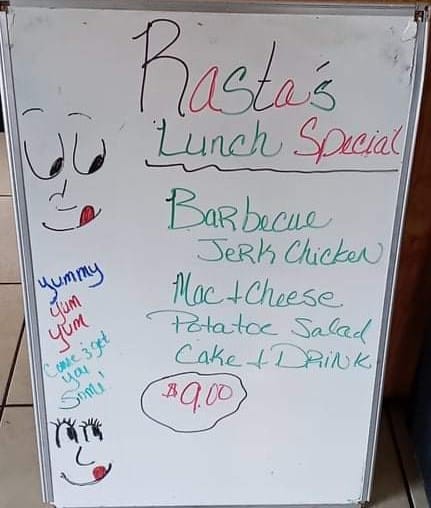 Rasta's
Lunch Special
Barbecue
Jerk Chicken
Mac + Cheese
Potatoe Salad
Cake + Drink
$9.00
yummy
yum
yum
Come 3 get
you
Some!